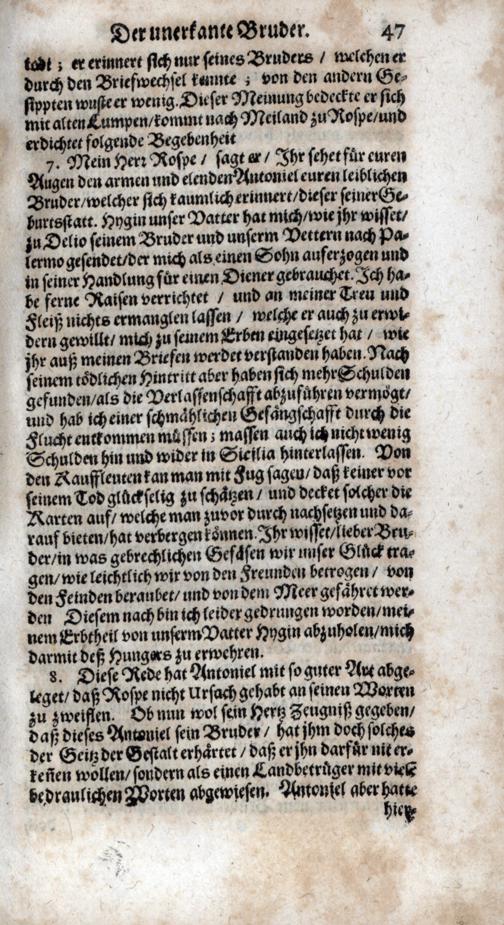 Der unerkante Bruder. 47
todt ; er erinnert sich nur seines Bruders / welchen er
durch den Briefwechsel kennte ; von den andern Ge-
sippten wuste er wenig. Dieser Meinung bedeckte er sich
mit alten Lumpen/kommt nach Meiland zu Rospe/und
erdichtet folgende Begebenheit
7. Mein Herr Rospe / sagt er / Ihr sehet für euren
Augen den armen und elenden Antoniel euren leiblichen
Bruder/welcher sich kaumlich erinnert/dieser seiner Ge-
burtsstatt. Hygin unser Vatter hat mich/wie jhr wisset/
zu Delio seinem Bruder und unserm Vettern nach Pa-
lermo gesendet/der mich als einen Sohn auferzogen und
in seiner Handlung für einen Diener gebrauchet. Ich ha-
be ferne Raisen verrichtet / und an meiner Treu und
Fleiß nichts ermanglen lassen / welche er auch zu erwi-
dern gewillt/ mich zu seinem Erben eingesetzet hat / wie
jhr auß meinen Briefen werdet verstanden haben. Nach
seinem tödlichen Hintritt aber haben sich mehr Schulden
gefunden/als die Verlassenschafft abzuführen vermögt/
und hab ich einer schmählichen Gefängschafft durch die
Flucht entkommen müssen ; massen auch ich nicht wenig
Schulden hin und wider in Sicilia hinterlassen. Von
den Kauffleuten kan man mit Fug sagen/ daß keiner vor
seinem Tod glückselig zu schätzen / und decket solcher die
Karten auf/ welche man zuvor durch nachsetzen und da-
rauf bieten/hat verbergen können. Ihr wisset/lieber Bru-
der/in was gebrechlichen Gefäsen wir unser Glück tra-
gen/wie leichtlich wir von den Freunden betrogen / von
den Feinden beraubet/ und von dem Meer gefähret wer-
den Diesem nach bin ich leider gedrungen worden/mei-
nem Erbtheil von unserm Vatter Hygin abzuholen/mich
darmit deß Hungers zu erwehren.
8. Diese Rede hat Antoniel mit so guter Art abge-
leget/ daß Rospe nicht Ursach gehabt an seinen Worten
zu zweiflen. Ob nun wol sein Hertz Zeugniß gegeben/
daß dieses Antoniel sein Bruder / hat jhm doch solches
der Geitz der Gestalt erhärtet / daß er jhn darfür nit er-
keñen wollen/ sondern als einen Landbetrüger mit viele
bedraulichen Worten abgewiesen. Antoniel aber hatte
hier-